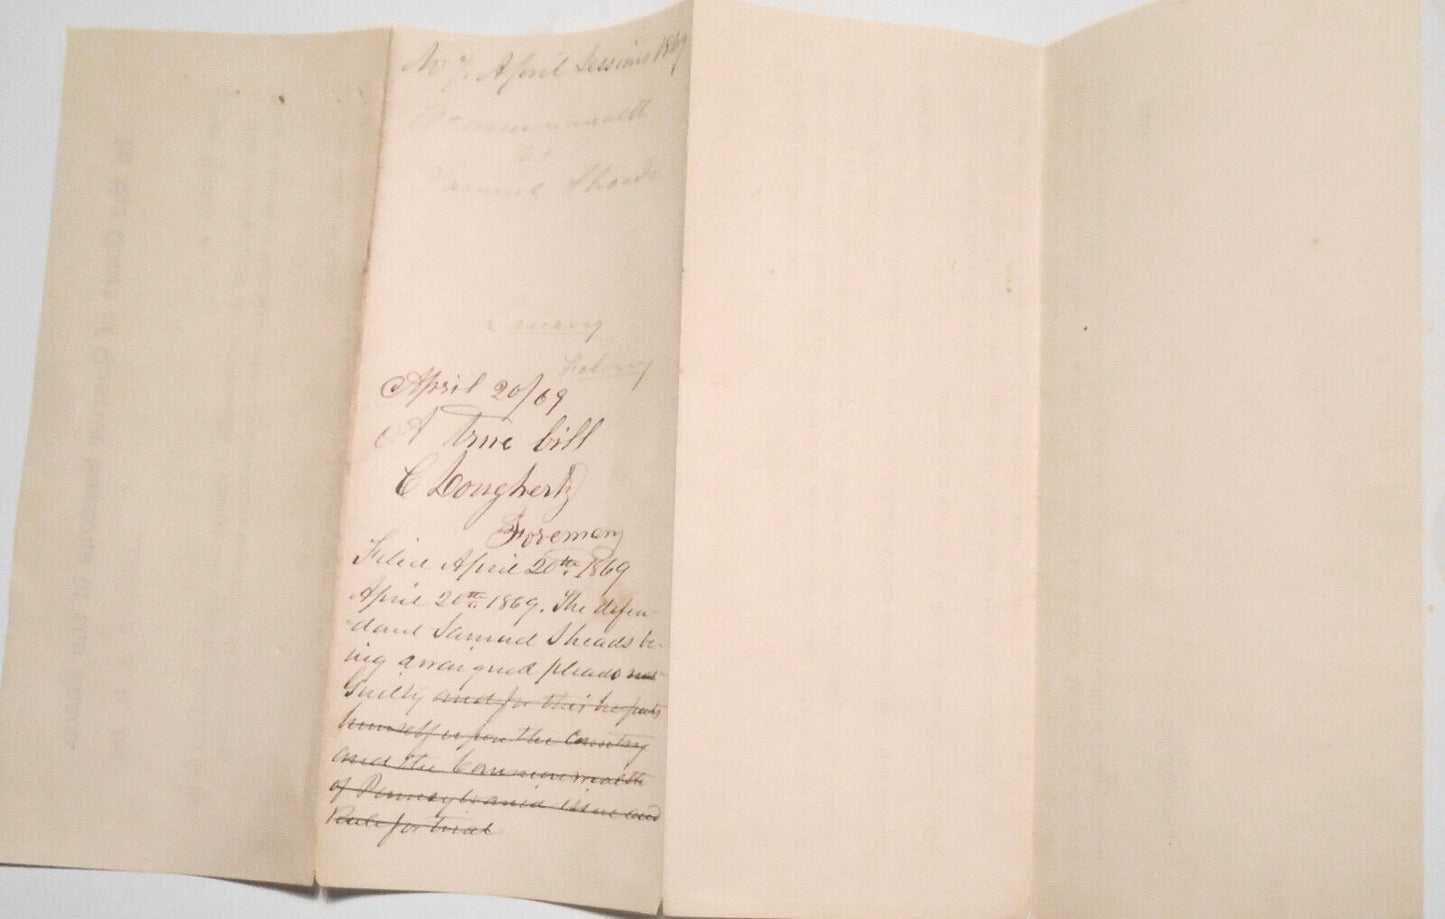 No 7. April Sessions 1869
Commonwealth
vs
Samuel Sheads
Larceny
Felony
April 20/69
A True bill
C Dougherty
Foreman
Filed April 20th 1869
April 20th 1869. The defen-
dant Samuel Sheads be-
ing arraigned pleads not
Guilty and for this he puts
himself upon the Country
and the Commonwealth
of Pennsylvania issue and
Rule for trial